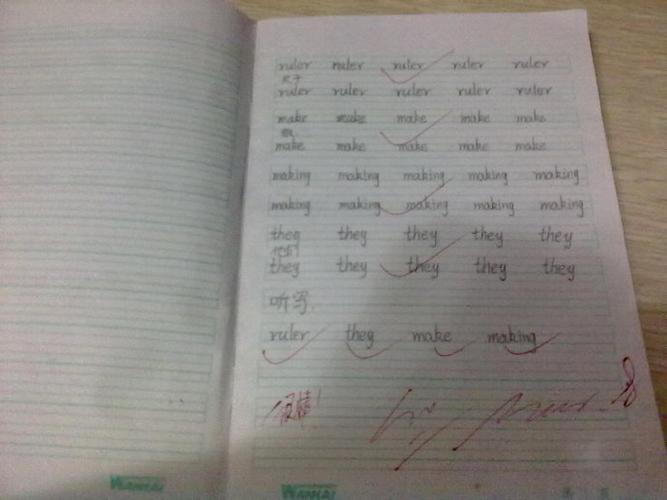 ruler ruler ruler ruler ruler
尺子
ruler ruler ruler ruler ruler
make make make make make
make make make make make
making making making making making
making making making making making
they they they they they
他们
they they they they they
听写.
ruler they make making
WANHAI WANHAI